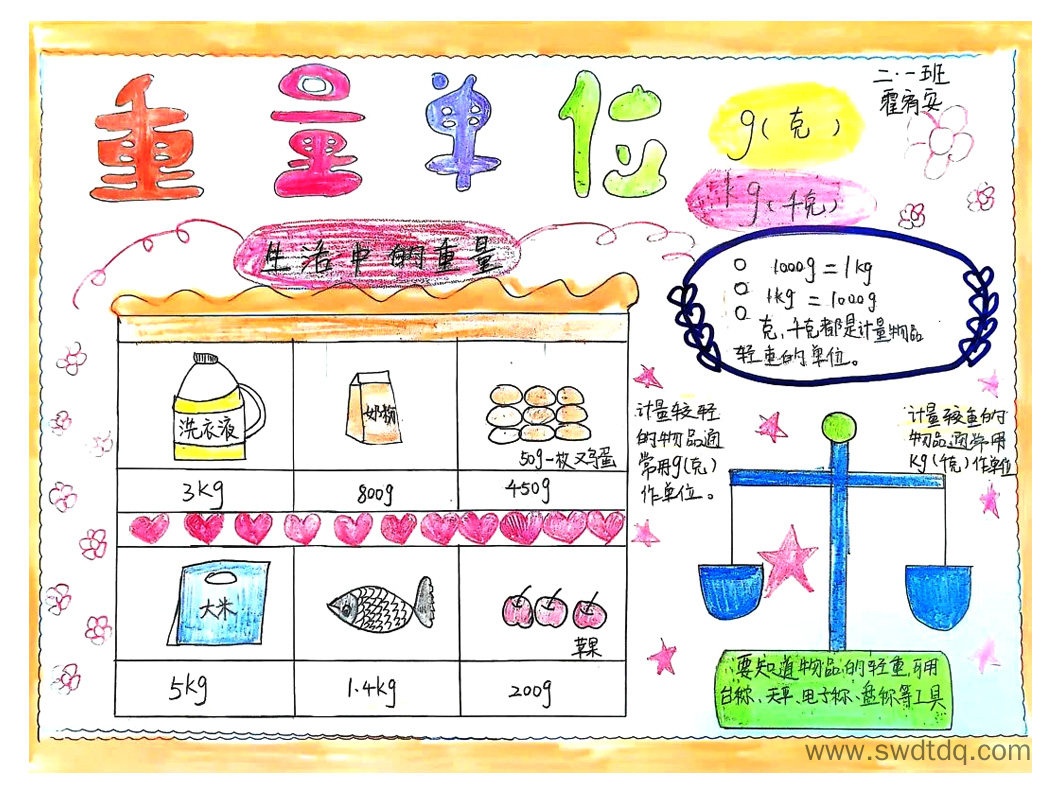 重量单位
二.一班
霍宥安
g(克)
kg(千克)
生活中的重量
1000g=1kg
1kg=1000g
克,千克都是计量物品
轻重的单位。
洗衣液
奶粉
50g一枚鸡蛋
3kg
800g
450g
大米
苹果
5kg
1.4kg
200g
计量较轻
的物品通
常用g(克)
作单位。
计量较重的
物品通常用
kg(千克)作单位
要知道物品的轻重,可用
台称、天平、电子称、盘称等工具
www.swdtdq.com